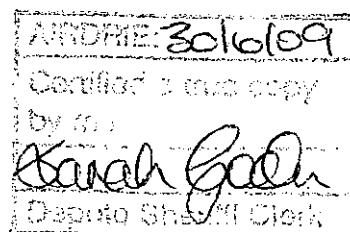 AIRDRIE: 30/6/09
Certified a true copy
by me
Sarah
Depute Sheriff Clerk